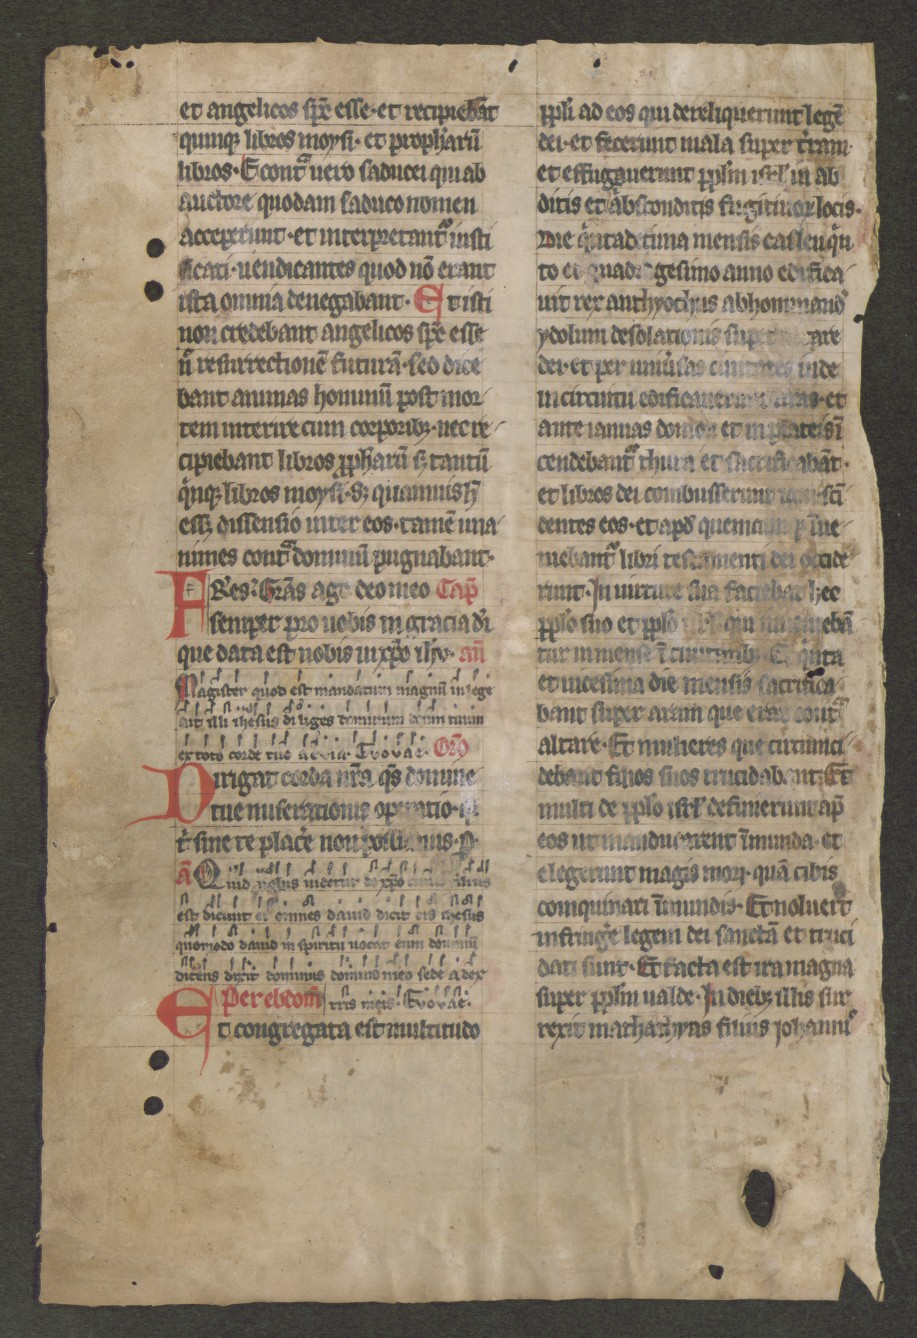 et angelicos sp̅e esse· et recipiebāt
quinqꝫ libros moysi· et propharū
libros· Econtᷓ uero saducei qui ab
auctore quodam saduco nomen
acceperunt· et interpretantᷣ iusti
ficati· uendicantes quod nō erant
ista omnia denegabant· Et isti
non credebant angelicos sp̅e esse
n̄ resurrectionē futurā· sed dice
bant animas hominū post mor
tem interire cum corporibꝫ· nec re
cipiebant libros ꝓpharū sꝫ tantū
qͥnqꝫ libros moysi· Sꝫ quamuis h̄
essꝫ dissensio inter eos· tamē una
nimes contᷓ dominū pugnabant·
FRes: Grās ago deo meo Cap̄
semper pro uobis in gracia dī
que data est uobis in xp̄o ihū· an̄
Magister quod est mandatum magnū in lege
ait illi ihesus diliges dominum deum tuum
ex toto corde tuo aevia· Evovae· Orō
Dirigat corda nr̄a qs̄ domine
tue miserationis operatio· q
t̄ sine te placē non possumus· P̄
ā Quid uobis uidetur de xp̄o cuius filius
est dicunt ei omnes dauid dicit eis ihesus
quomodo dauid in spiritu uocat eum dominū
dicens dixit dominus domino meo sede a dex
Per ebdom̄ tris meis· Evovae·
Et congregata est multitudo
ꝓpl̄i ad eos qui dereliquerunt legē
dei· et fecerunt mala super t̄ram·
et effugauerunt ꝓpl̄m isrl̄ in ab
ditis et absconditis fugitiuoꝝ locis·
Die qͥntadecima mensis casleu qͣr
to et quadragesimo anno edifica
uit rex anthyochus abhominandū
ydolum desolationis super altare
dei· et per uniūsas ciuitates iude
in circuitu edificauerunt aras· et
ante ianuas domoꝝ et in plateis ī
cendebantᷣ thura et sacrificabāt·
et libros dei combusserunt igni· scī
dentes eos· et apd̄ quemcumqꝫ īue
niebantᷣ libri testamenti dei occide
runt· In uirtute sua faciebat hec
ꝓpl̄o suo et ꝓpl̄o isrl̄ qui inueniebā
tur in mense ī ciuitatibꝫ· Et qͥnta
et uicesima die mensis sacrifica
bant super aram que erat contᷓ
altare· Et mulieres que circunci
debant filios suos trucidabant· Et
multi de ꝓpl̄o isrl̄ definierunt ap̄
eos ut manducarent īmunda· et
elegerunt magis mori· quā cibis
coinquinari īmundis· Et noluerūt
infringe legem dei sanctā et truci
dati sunt· Et facta est ira magna
super ꝓpl̄m ualde· In diebꝫ illis sur
rexit mathathyas filius johannis